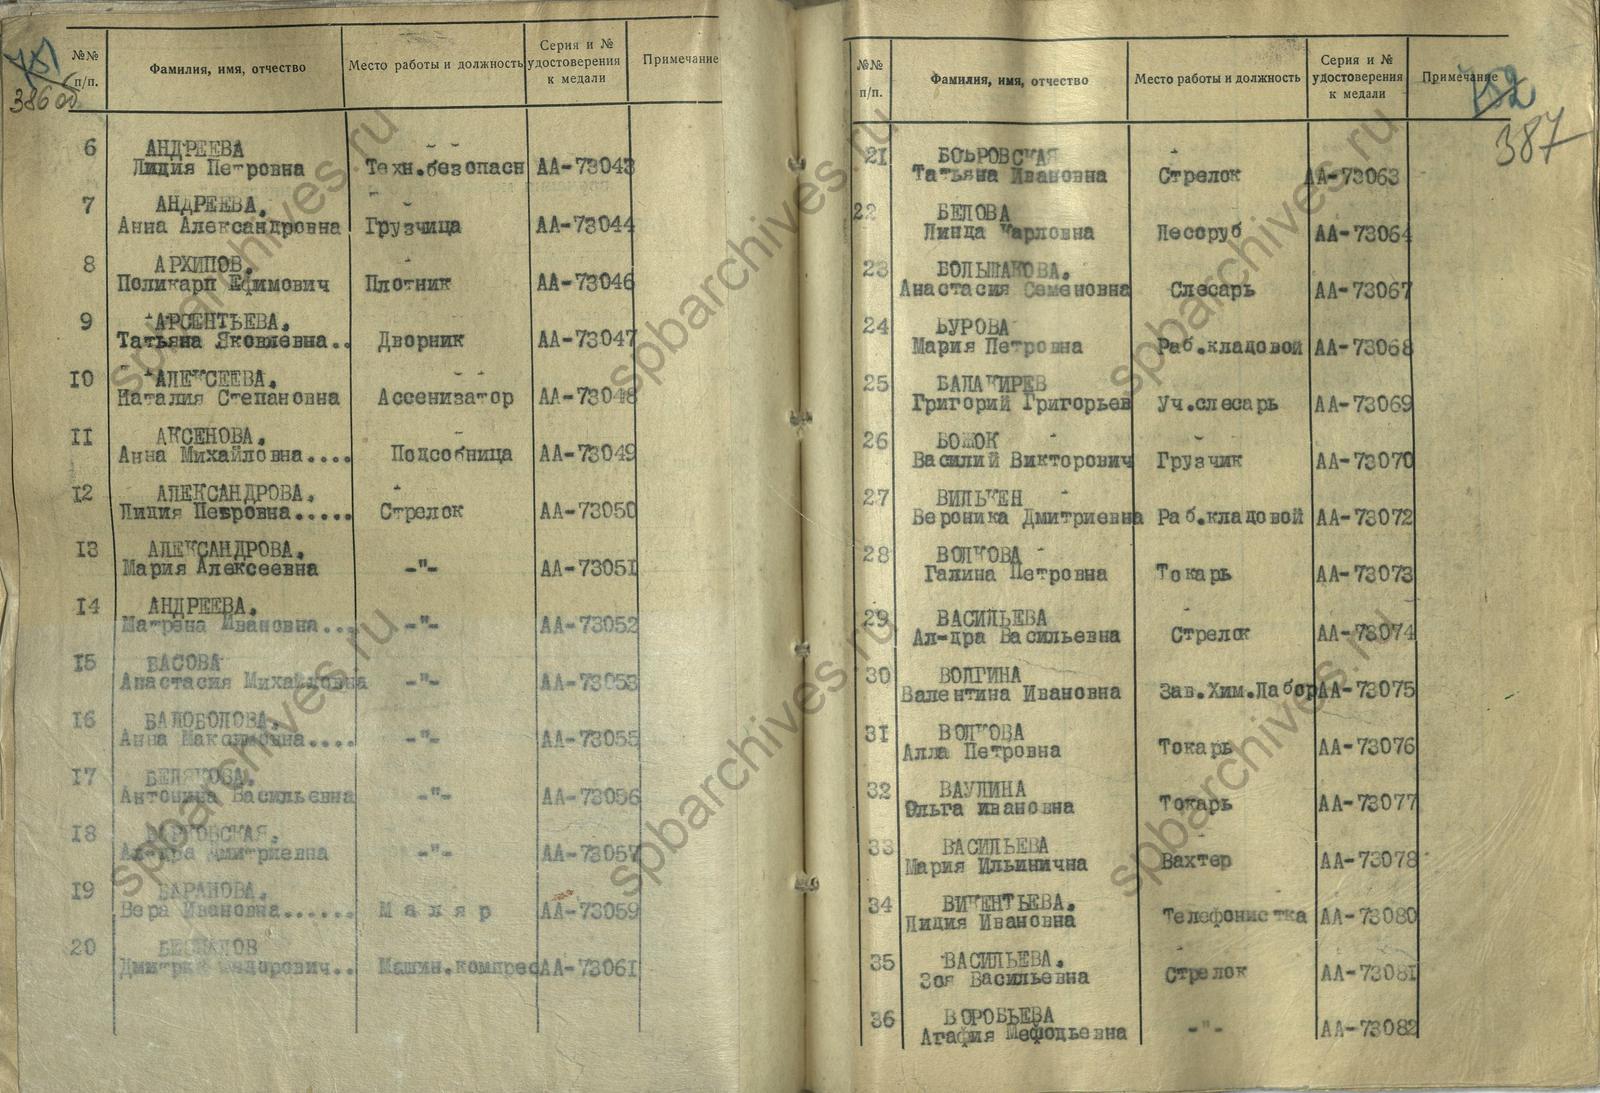 751
386 об
№№ п/п.
Фамилия, имя, отчество
Место работы и должность
Серия и № удостоверения к медали
Примечание
6 АНДРЕЕВА
Лидия Петровна Техн.безопасн АА-73043
7 АНДРЕЕВА.
Анна Александровна Грузчица АА-73044
8 АРХИПОВ.
Поликарп Ефимович Плотник АА-73046
9 АРСЕНТЬЕВА.
Татьяна Яковлевна.. Дворник АА-73047
10 АЛЕКСЕЕВА.
Наталия Степановна Ассенизатор АА-73048
11 АКСЕНОВА.
Анна Михайловна.... Подсобница АА-73049
12 АЛЕКСАНДРОВА.
Лидия Петровна..... Стрелок АА-73050
13 АЛЕКСАНДРОВА.
Мария Алексеевна -"- АА-73051
14 АНДРЕЕВА.
Матрена Ивановна... -"- АА-73052
15 БАСОВА
Анастасия Михайловна -"- АА-73053
16 БАЛОБОЛОВА.
Анна Максимовна.... -"- АА-73055
17 БЕЛЯКОВА.
Антонина Васильевна -"- АА-73056
18
Ал-дра Дмитриевна -"- АА-73057
19 БАРАНОВА.
Вера Ивановна...... Маляр АА-73059
20
Дмитрий Федорович.. Машин.компрес АА-73061
752
387
№№ п/п.
Фамилия, имя, отчество
Место работы и должность
Серия и № удостоверения к медали
Примечание
21 БОБРОВСКАЯ
Татьяна Ивановна Стрелок АА-73063
22 БЕЛОВА
Линда Карловна Лесоруб АА-73064
23 БОЛЬШАКОВА.
Анастасия Семеновна Слесарь АА-73067
24 БУРОВА
Мария Петровна Раб.кладовой АА-73068
25 БАЛАКИРЕВ
Григорий Григорьев Уч.слесарь АА-73069
26 БОЖОК
Василий Викторович Грузчик АА-73070
27 ВИЛЬКЕН
Вероника Дмитриевна Раб.кладовой АА-73072
28 ВОЛКОВА
Галина Петровна Токарь АА-73073
29 ВАСИЛЬЕВА
Ал-дра Васильевна Стрелок АА-73074
30 ВОЛГИНА
Валентина Ивановна Зав.Хим.Лабор АА-73075
31 ВОЛКОВА
Алла Петровна Токарь АА-73076
32 ВАУЛИНА
Ольга ивановна Токарь АА-73077
33 ВАСИЛЬЕВА
Мария Ильинична Вахтер АА-73078
34 ВИКЕНТЬЕВА.
Лидия Ивановна Телефонистка АА-73080
35 ВАСИЛЬЕВА.
Зоя Васильевна Стрелок АА-73081
36 ВОРОБЬЕВА
Агафия Мефодьевна -"- АА-73082
spbarchives.ru
spbarchives.ru
spbarchives.ru
spbarchives.ru
spbarchives.ru
spbarchives.ru